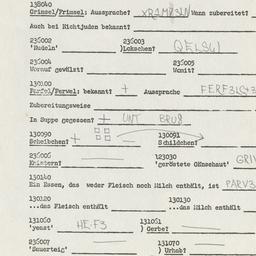 138040
Grimsel/Frimsel: Aussprache? Wann zubereitet?
Auch bei Nichtjuden bekannt?
236002 236003
'Nudeln' )Lokschen? QELSÚI
236004 236005
Worauf gewälzt? Womit?
130100
Farfel/Fervel: bekannt? + Aussprache
Zubereitungsweise
In Suppe gegessen? + UNT BRUS
130090 130091
Scheibchen? + Schildchen?
236006 123030
Knistern? 'geröstete Gänsehaut' GRI
130140
Ein Essen, das weder Fleisch noch Milch enthält, ist PARV3
130120 130130
...das Fleisch enthält ...das Milch enthält
131060 131061
'yeast' HE.F3 ) Gerbe?
236007 131070
'Sauerteig' ) Urheb?